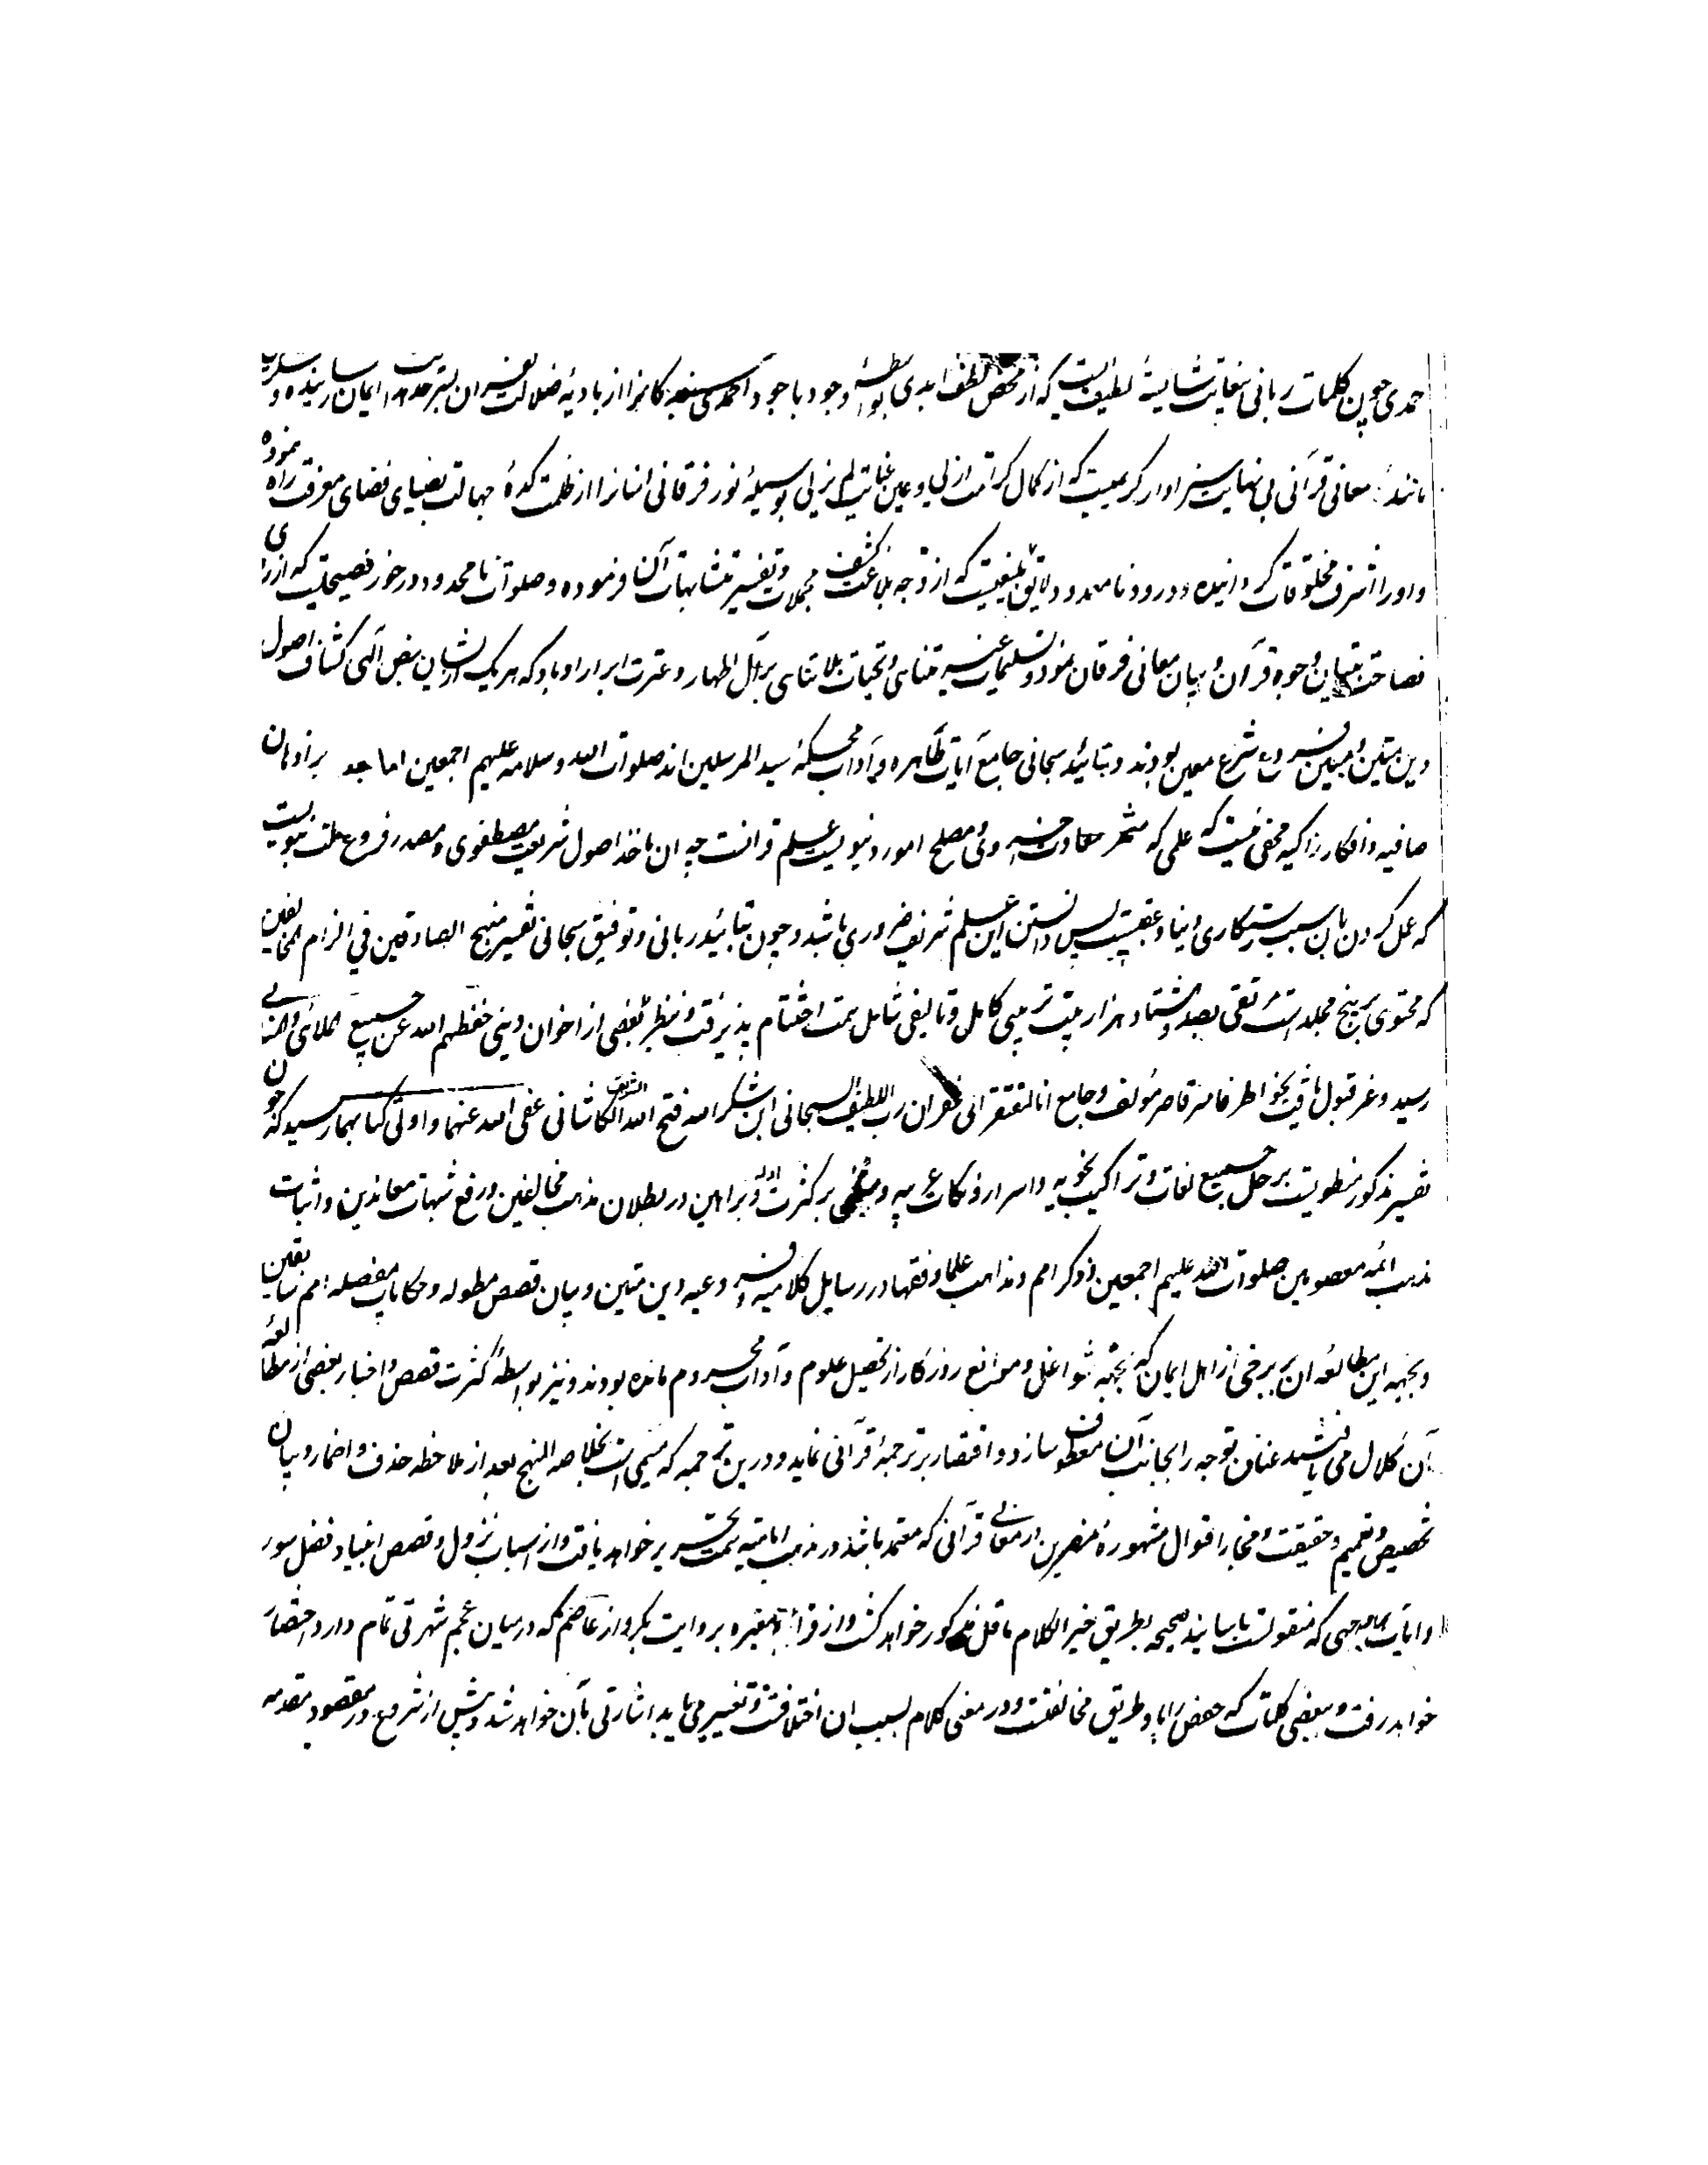 حمدی چون کلمات ربانی بیغایت شایستهٔ لطیفیست که از محض لطف ابدی بواسطهٔ وجود با جود احمدی سفینه کانرا از بادیهٔ ضلالت بسر حد ایمان رسانیده و
مانند معانی قرآنی بی نهایت سزاوار کریمیست که از کمال کرامت ازلی و عین عنایت لم یزلی بوسیلهٔ نور فرقانی انسانرا از ظلمت کدهٔ جهالت بضیای فضای معرفت راه نموده
و اورا اشرف مخلوقات گردانیده و درود نامعدود لایق بلیغیست که از توجه بلاغت کشف مجملات و تفسیر متشابهات آن فرموده و صلوات نامحدود در خور فصیحیست که از رای
فصاحت تبیان وجوه قرآن و بیان معانی فرقان نموده و تسلیمات غیر متناهی و تحیات بلا تناهی بر آل اطهار و عترت ابرار او باد که هر یک از ایشان بفیض الهی کشاف اصول
دین متین و مبین فروع شرع معین بودند و بتائید سبحانی جامع آیات ظاهره و آداب محکمهٔ سید المرسلین اند صلوات الله و سلامه علیهم اجمعین اما بعد بر اذهان
صافیه و افکار زاکیه مخفی نیست که علمی که مثمر سعادت اخروی و مصلح امور دنیویست علم قرانست چه ان ماخذ اصول شریعت مصطفوی و مصدر فروع ملت نبویست
که عمل کردن بان سبب رستکاری دنیا و عقبیست پس دانستن این علم شریف ضروری باشد و چون بتائید ربانی و توفیق سبحانی تفسیر منهج الصادقین فی الزام المخالفین
که محتوی بر پنج مجلد است تقی بصد و هشتاد هزار بیت ترتیبی کامل و تالیفی شامل سمت اختتام پذیرفت و بنظر بعضی از اخوان دینی حفظهم الله عن جمیع البلائی و
رسید و عز قبول یافت بخواطر فاتر قاصر مؤلف و جامع انا المفتقر الی غفران رب اللطیف السبحانی ابن شکر الله فتح الله الشریف الکاشانی عفی الله عنهما و اولی کتابهما رسید که چون
تفسیر مذکور منطویست بر حل جمیع لغات و تراکیب نحویه و اسرار و نکات عربیه و مبتنی بر کثرت ادله و براهین در بطلان مذهب مخالفین و رفع شبهات معاندین و اثبات
مذهب ائمه معصومین صلوات الله علیهم اجمعین و ذکر امم و مذاهب علما و فقها در رسایل کلامیه و فرعیه دین متین و بیان قصص مطوله و حکایات مفصله امم سابقین
و بجهه این مطالعه ان بر برخی از اهل ایمان که بجهة شواغل و موانع روزکار از تحصیل علوم و آداب محروم مانده بودند و نیز بواسطهٔ کثرت قصص و اخبار بعضی از مطالعهٔ
آن کلال می یافتند باشد عنان توجه را بجانب آن معطوف سازد و اقتصار بر ترجمهٔ قرآنی نماید و درین ترجمه که مسمی است بخلاصه المنهج بعد از ملاحظه حذف و اضمار و بیان
تخصیص و تعمیم و حقیقت و مجاز اقوال مشهورهٔ مفسرین از معانی قرآنی که معتمد باشد در مذهب امامیه سمت تحریر خواهد یافت و از اسباب نزول و قصص انبیا و فضل سور
و آیات بوجهی که منقولست باسانید صحیحه بطریق خیر الکلام ما قل مذکور خواهد کشت و از قرآت معتبره بروایت بکر از عاصم که در میان عجم شهرتی تمام دارد اختصار
خواهد رفت و بعضی کلمات که حفص را با او طریق مخالفتست و در معنی کلام بسبب ان اختلاف و تغییر می یابد اشارتی بآن خواهد شد و پیش از شروع در مقصود مقدمه